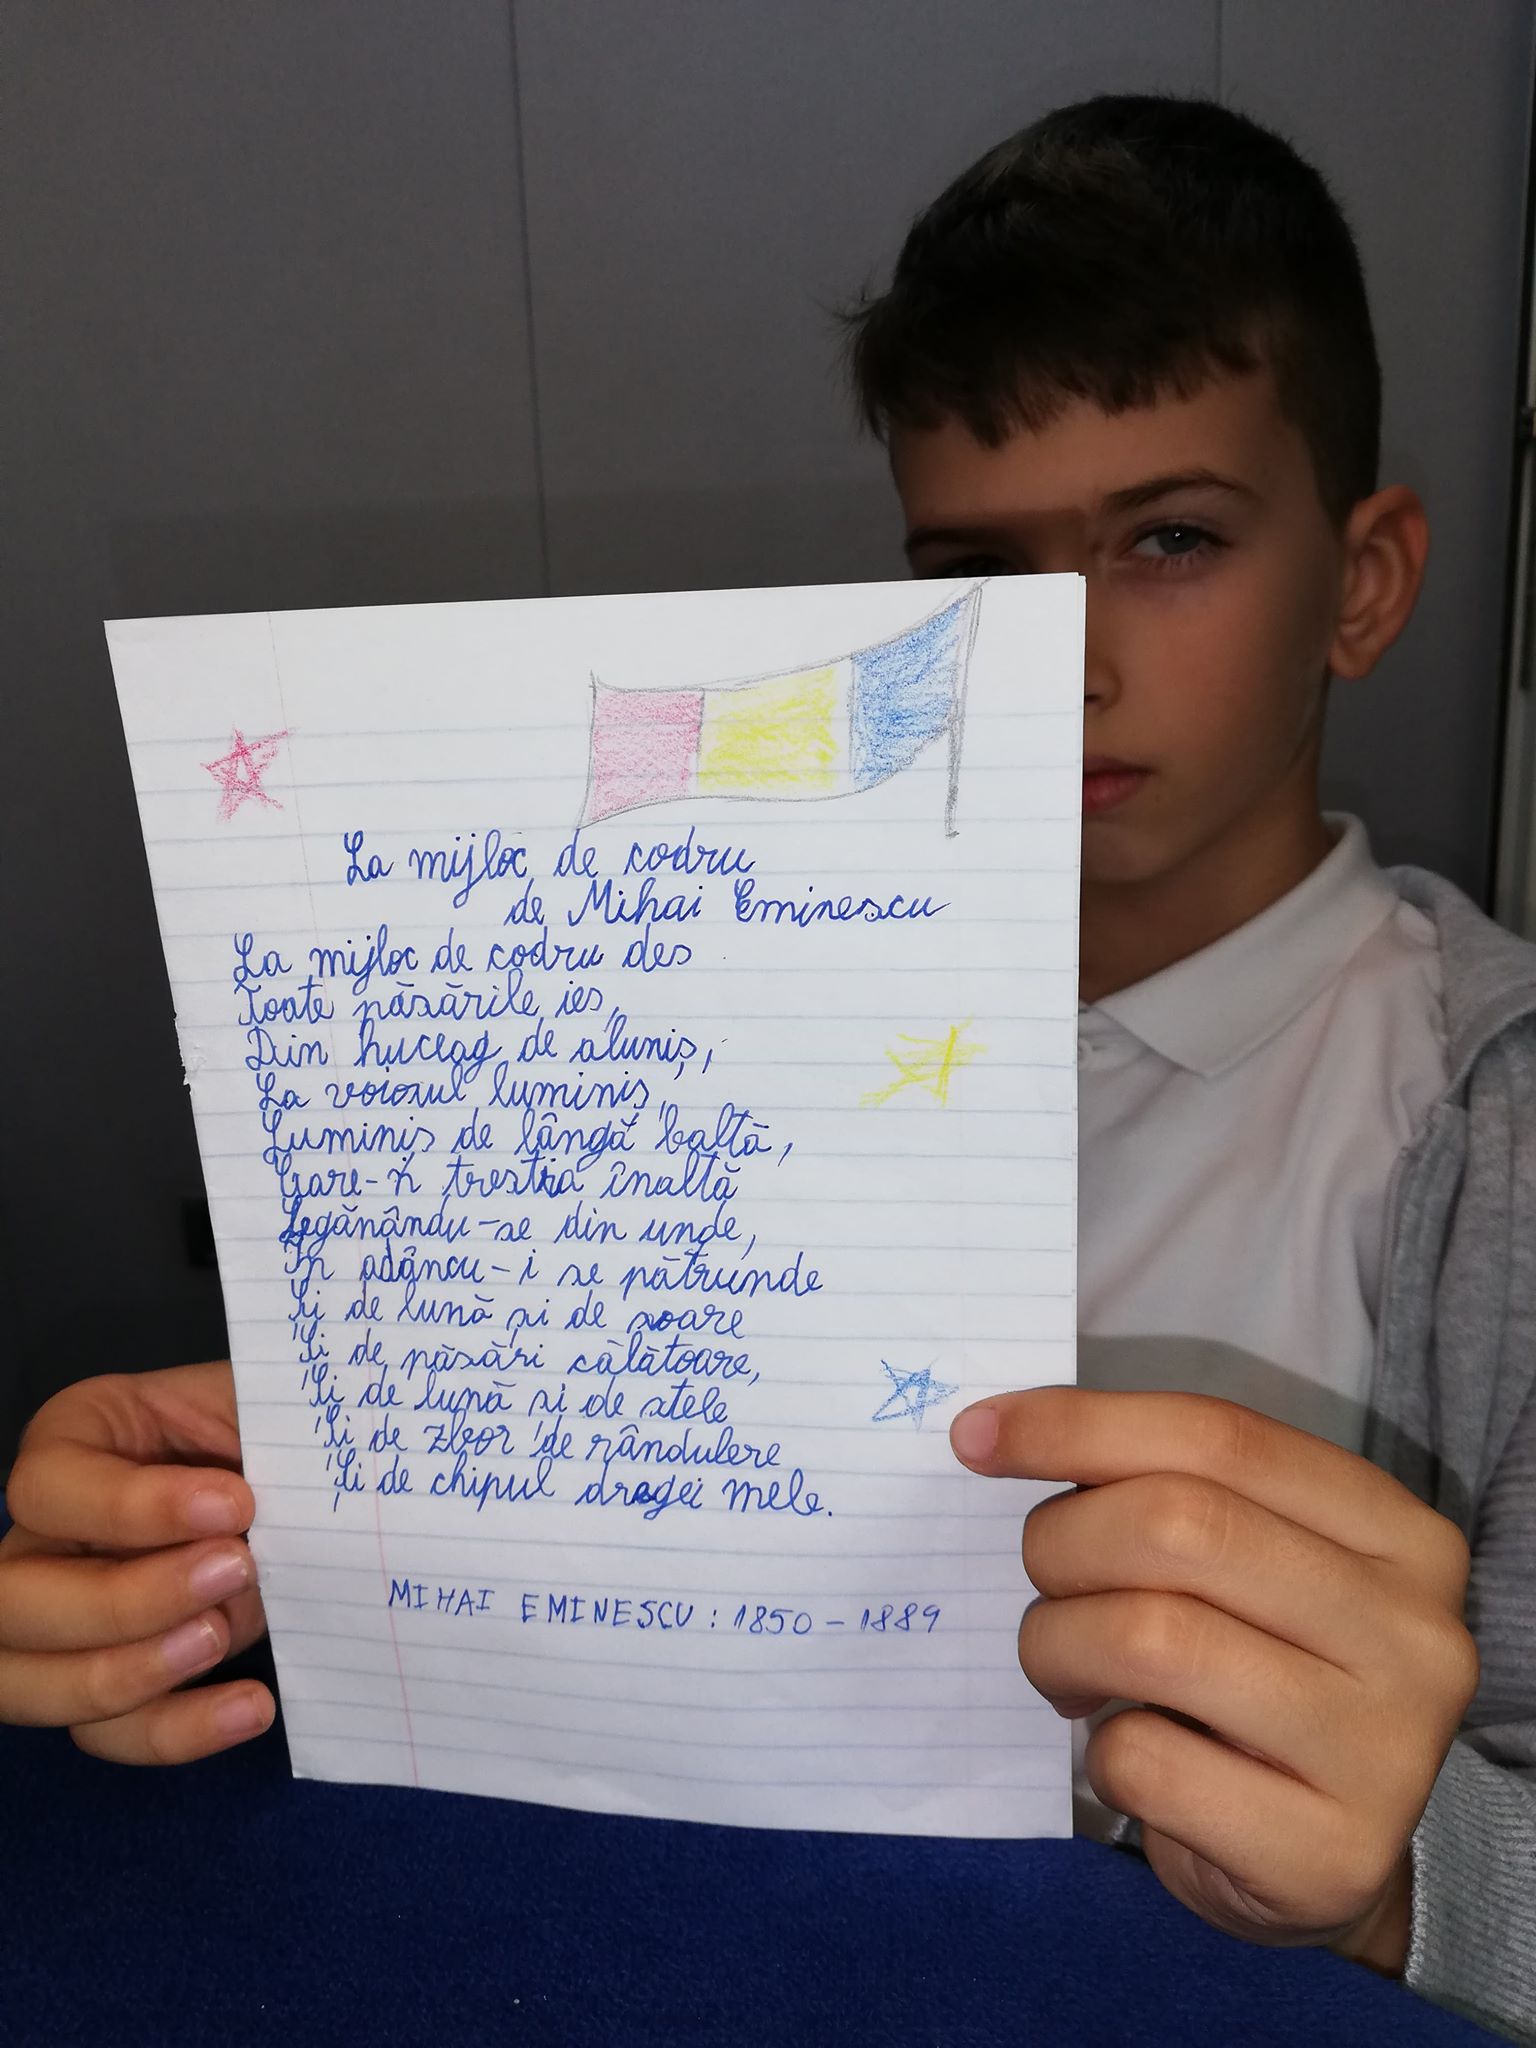 La mijloc de codru
de Mihai Eminescu
La mijloc de codru des
Toate păsările ies,
Din huceag de aluniș,
La voiosul luminiș,
Luminiș de lângă baltă,
Care-n trestia înaltă
Legănându-se din unde,
În adâncu-i se pătrunde
Și de lună și de soare
Și de păsări călătoare,
Și de lună și de stele
Și de zbor de rândulere
Și de chipul dragei mele.
MIHAI EMINESCU : 1850 - 1889